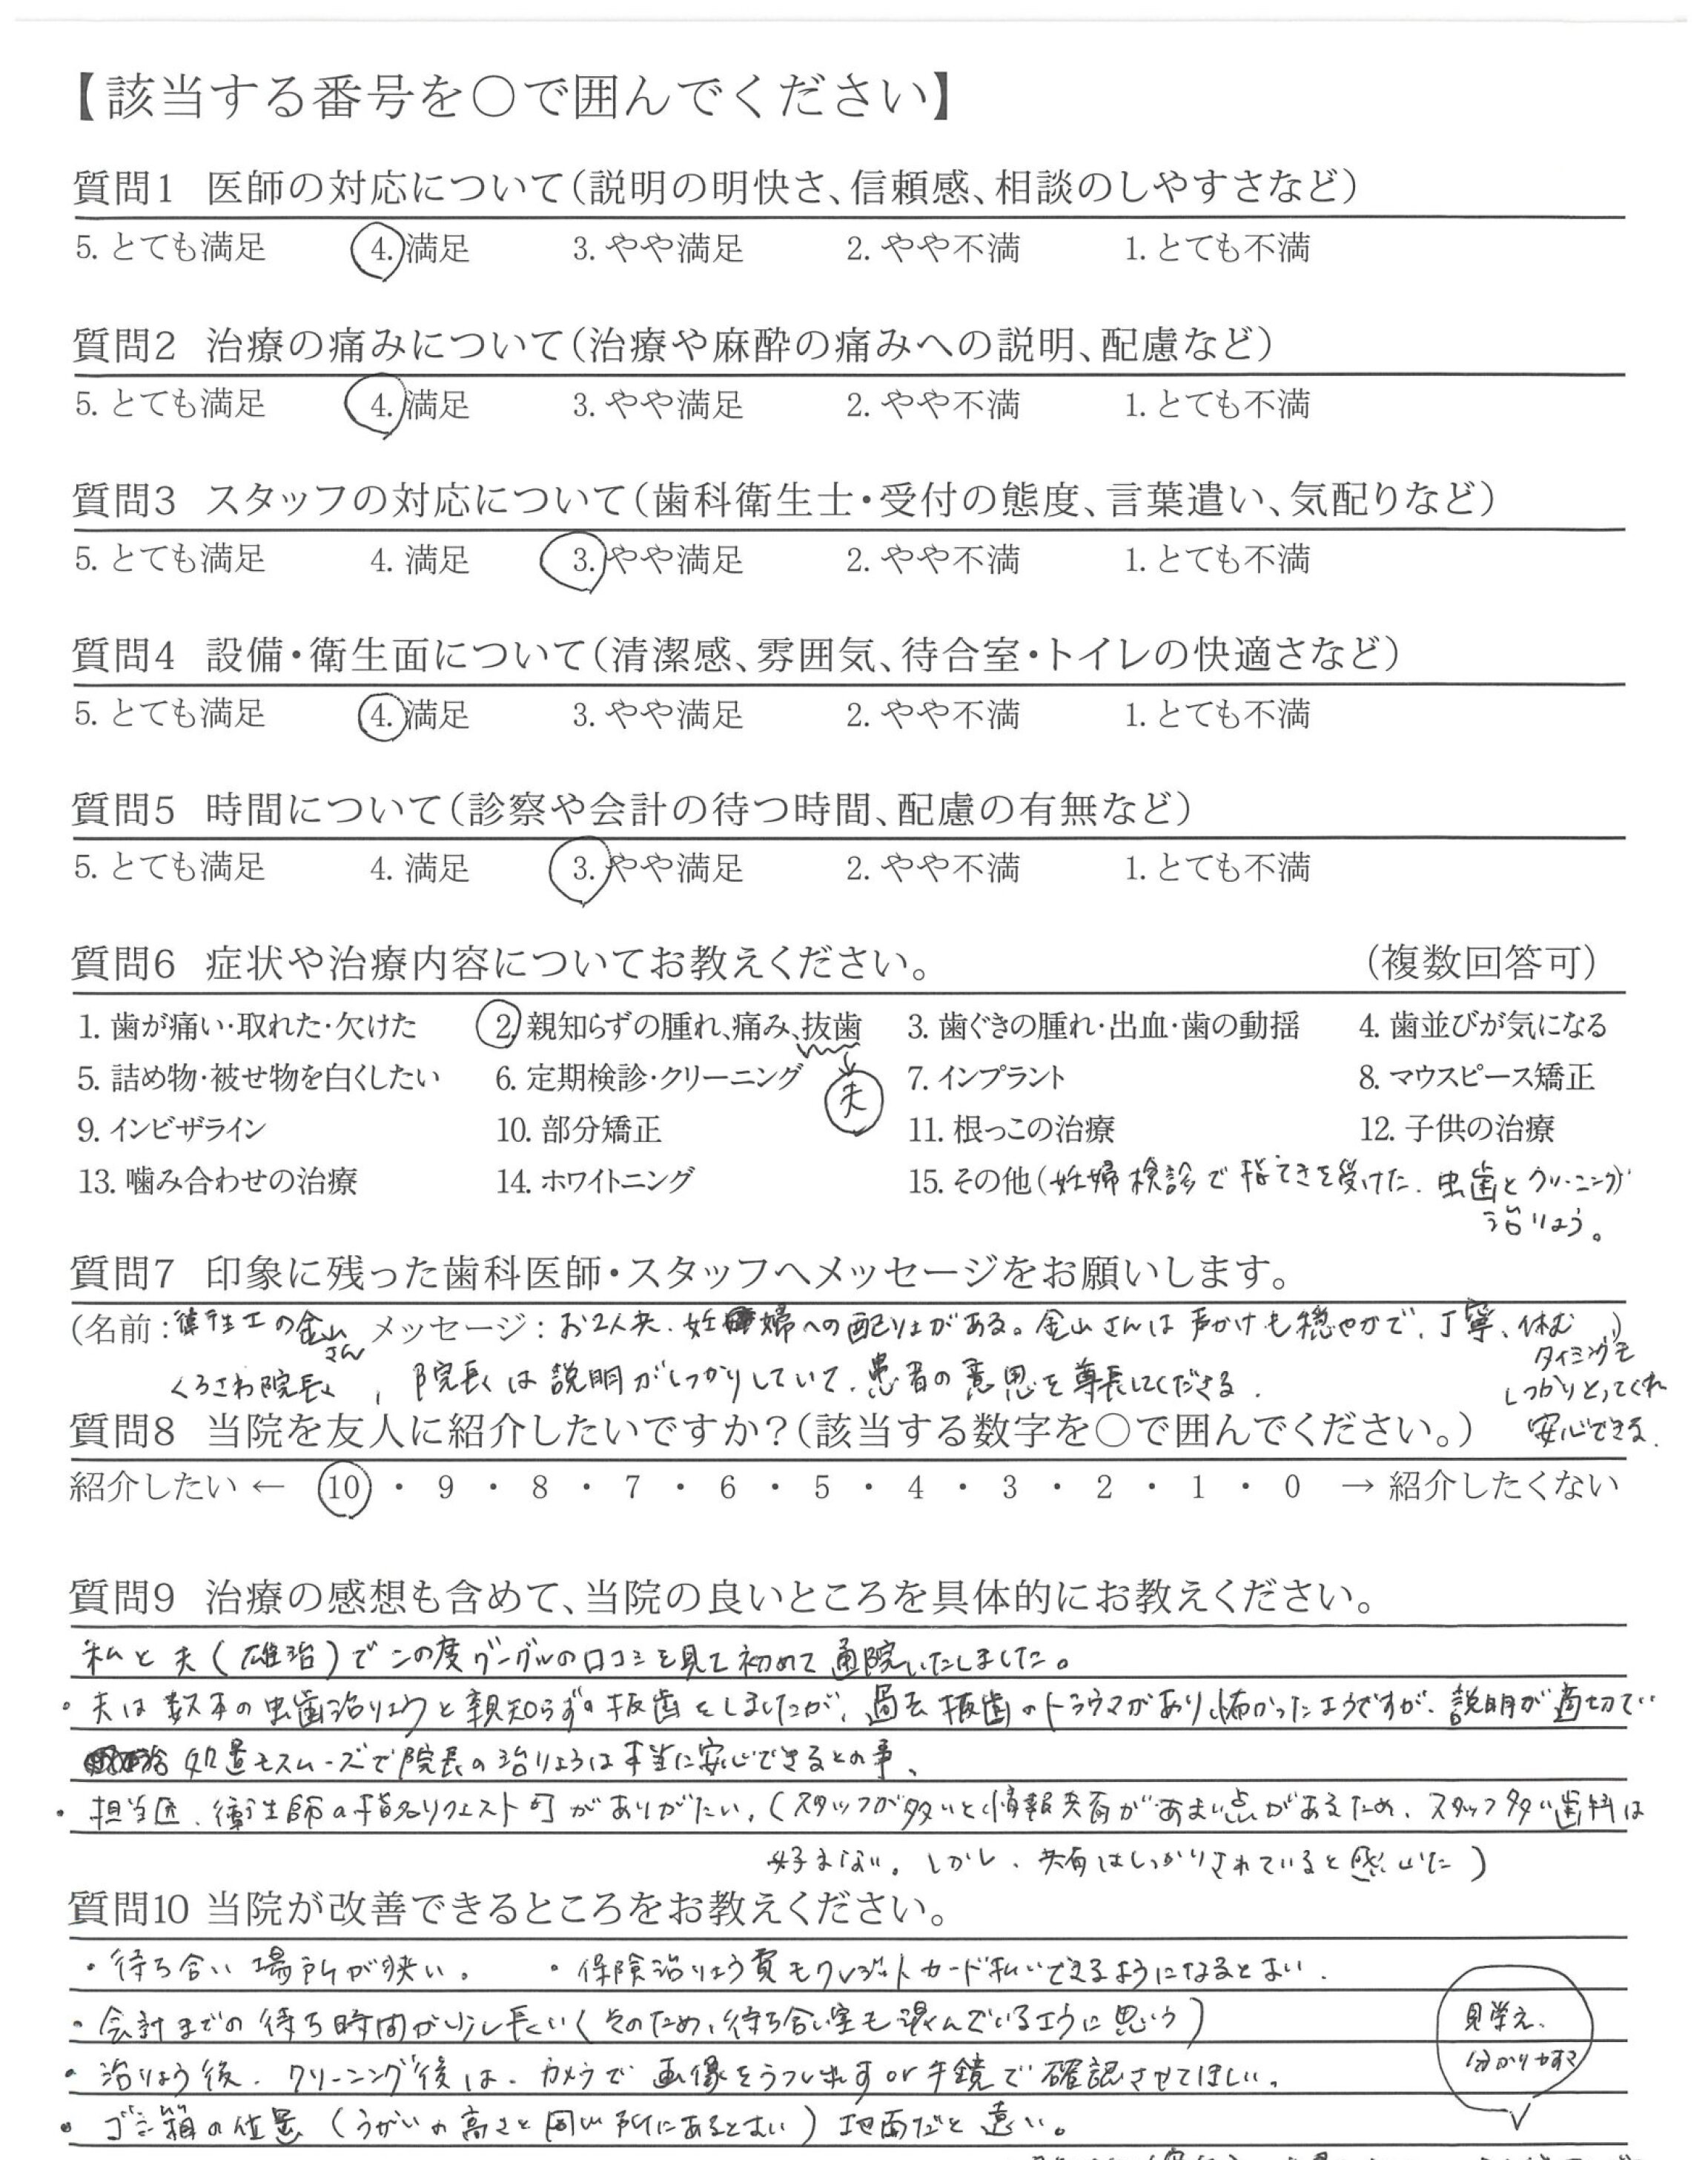 【該当する番号を○で囲んでください】
質問1 医師の対応について(説明の明快さ、信頼感、相談のしやすさなど)
5. とても満足 4. 満足 3. やや満足 2. やや不満 1. とても不満
質問2 治療の痛みについて(治療や麻酔の痛みへの説明、配慮など)
5. とても満足 4. 満足 3. やや満足 2. やや不満 1. とても不満
質問3 スタッフの対応について(歯科衛生士・受付の態度、言葉遣い、気配りなど)
5. とても満足 4. 満足 3. やや満足 2. やや不満 1. とても不満
質問4 設備・衛生面について(清潔感、雰囲気、待合室・トイレの快適さなど)
5. とても満足 4. 満足 3. やや満足 2. やや不満 1. とても不満
質問5 時間について(診察や会計の待つ時間、配慮の有無など)
5. とても満足 4. 満足 3. やや満足 2. やや不満 1. とても不満
質問6 症状や治療内容についてお教えください。 (複数回答可)
1. 歯が痛い・取れた・欠けた 2. 親知らずの腫れ、痛み、抜歯 3. 歯ぐきの腫れ・出血・歯の動揺 4. 歯並びが気になる
5. 詰め物・被せ物を白くしたい 6. 定期検診・クリーニング 7. インプラント 8. マウスピース矯正
夫
9. インビザライン 10. 部分矯正 11. 根っこの治療 12. 子供の治療
13. 噛み合わせの治療 14. ホワイトニング 15. その他(妊婦検診で指てきを受けた. 虫歯とクリーニング
治りょう。
質問7 印象に残った歯科医師・スタッフへメッセージをお願いします。
(名前:衛生士の金山さん メッセージ:お2人共、妊婦への配りょがある。金山さんは声かけも穏やかで、丁寧、休む)
タイミングも
くろさわ院長 , 院長は説明がしっかりしていて、患者の意思を尊長してくださる.
しっかりとってくれ
質問8 当院を友人に紹介したいですか?(該当する数字を○で囲んでください。)
安心できる.
紹介したい ← 10 ・ 9 ・ 8 ・ 7 ・ 6 ・ 5 ・ 4 ・ 3 ・ 2 ・ 1 ・ 0 → 紹介したくない
質問9 治療の感想も含めて、当院の良いところを具体的にお教えください。
私と夫(雄治)でこの度グーグルの口コミを見て初めて通院いたしました。
・夫は数本の虫歯治りょうと親知らずの抜歯をしましたが、過去抜歯のトラウマがあり怖かったようですが、説明が適切で
処置もスムーズで院長の治りょうは本当に安心できるとの事、
・担当医、衛生師の指名リクエスト可がありがたい。(スタッフが多いと情報共有があまい点があるため、スタッフ多い歯科は
好まない。しかし、共有はしっかりされていると感じた)
質問10 当院が改善できるところをお教えください。
・待ち合い場所が狭い。 ・保険治りょう費もクレジットカード払いできるようになるとよい.
・会計までの待ち時間が少し長い(そのため、待ち合い室も混んでいるように思う)
・治りょう後、クリーニング後は、カメラで画像をうつし出す or 手鏡で確認させてほしい。
見栄え、
分かりやすさ
・ゴミ箱の位置(うがいの高さと同じ所にあるとよい)地面だと遠い。